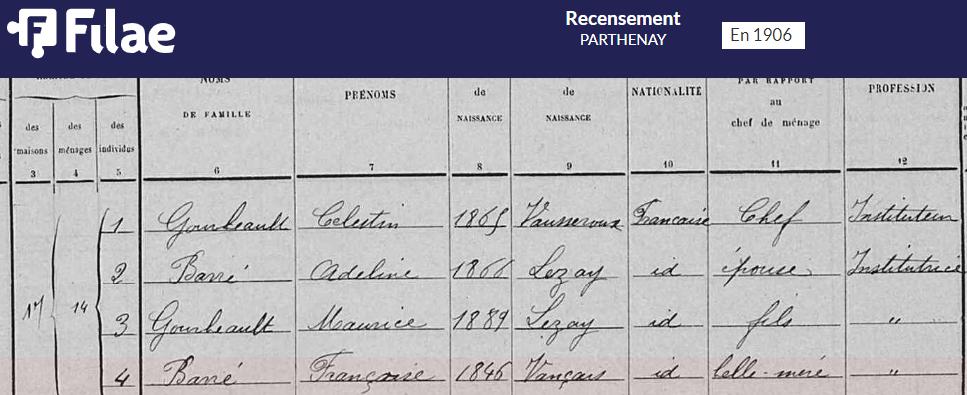 Filae
Recensement
PARTHENAY
En 1906
NOMS
DE FAMILLE
PRÉNOMS
de
NAISSANCE
de
NAISSANCE
NATIONALITÉ
PAR RAPPORT
au
chef de ménage
PROFESSION
des
maisons
des
ménages
des
individus
3 4 5 6 7 8 9 10 11 12
1 Gourbeault Celestin 1865 Vausseroux Française Chef Instituteur
2 Barré Adeline 1866 Lezay id épouse Institutrice
17 14 3 Gourbeault Maurice 1889 Lezay id fils "
4 Barré Françoise 1846 Vançais id belle-mère "